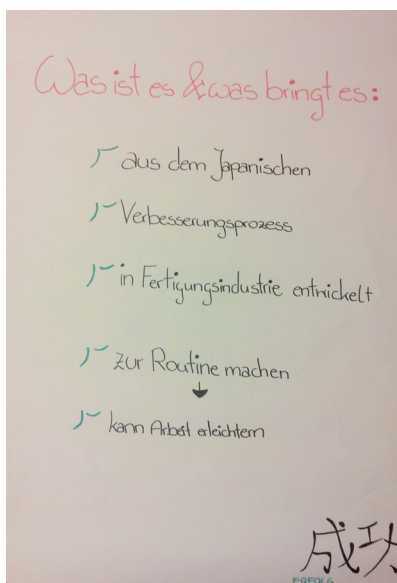 Was ist es & was bringt es:
aus dem Japanischen
Verbesserungsprozess
in Fertigungsindustrie entwickelt
zur Routine machen
kann Arbeit erleichtern
成功
ERFOLG